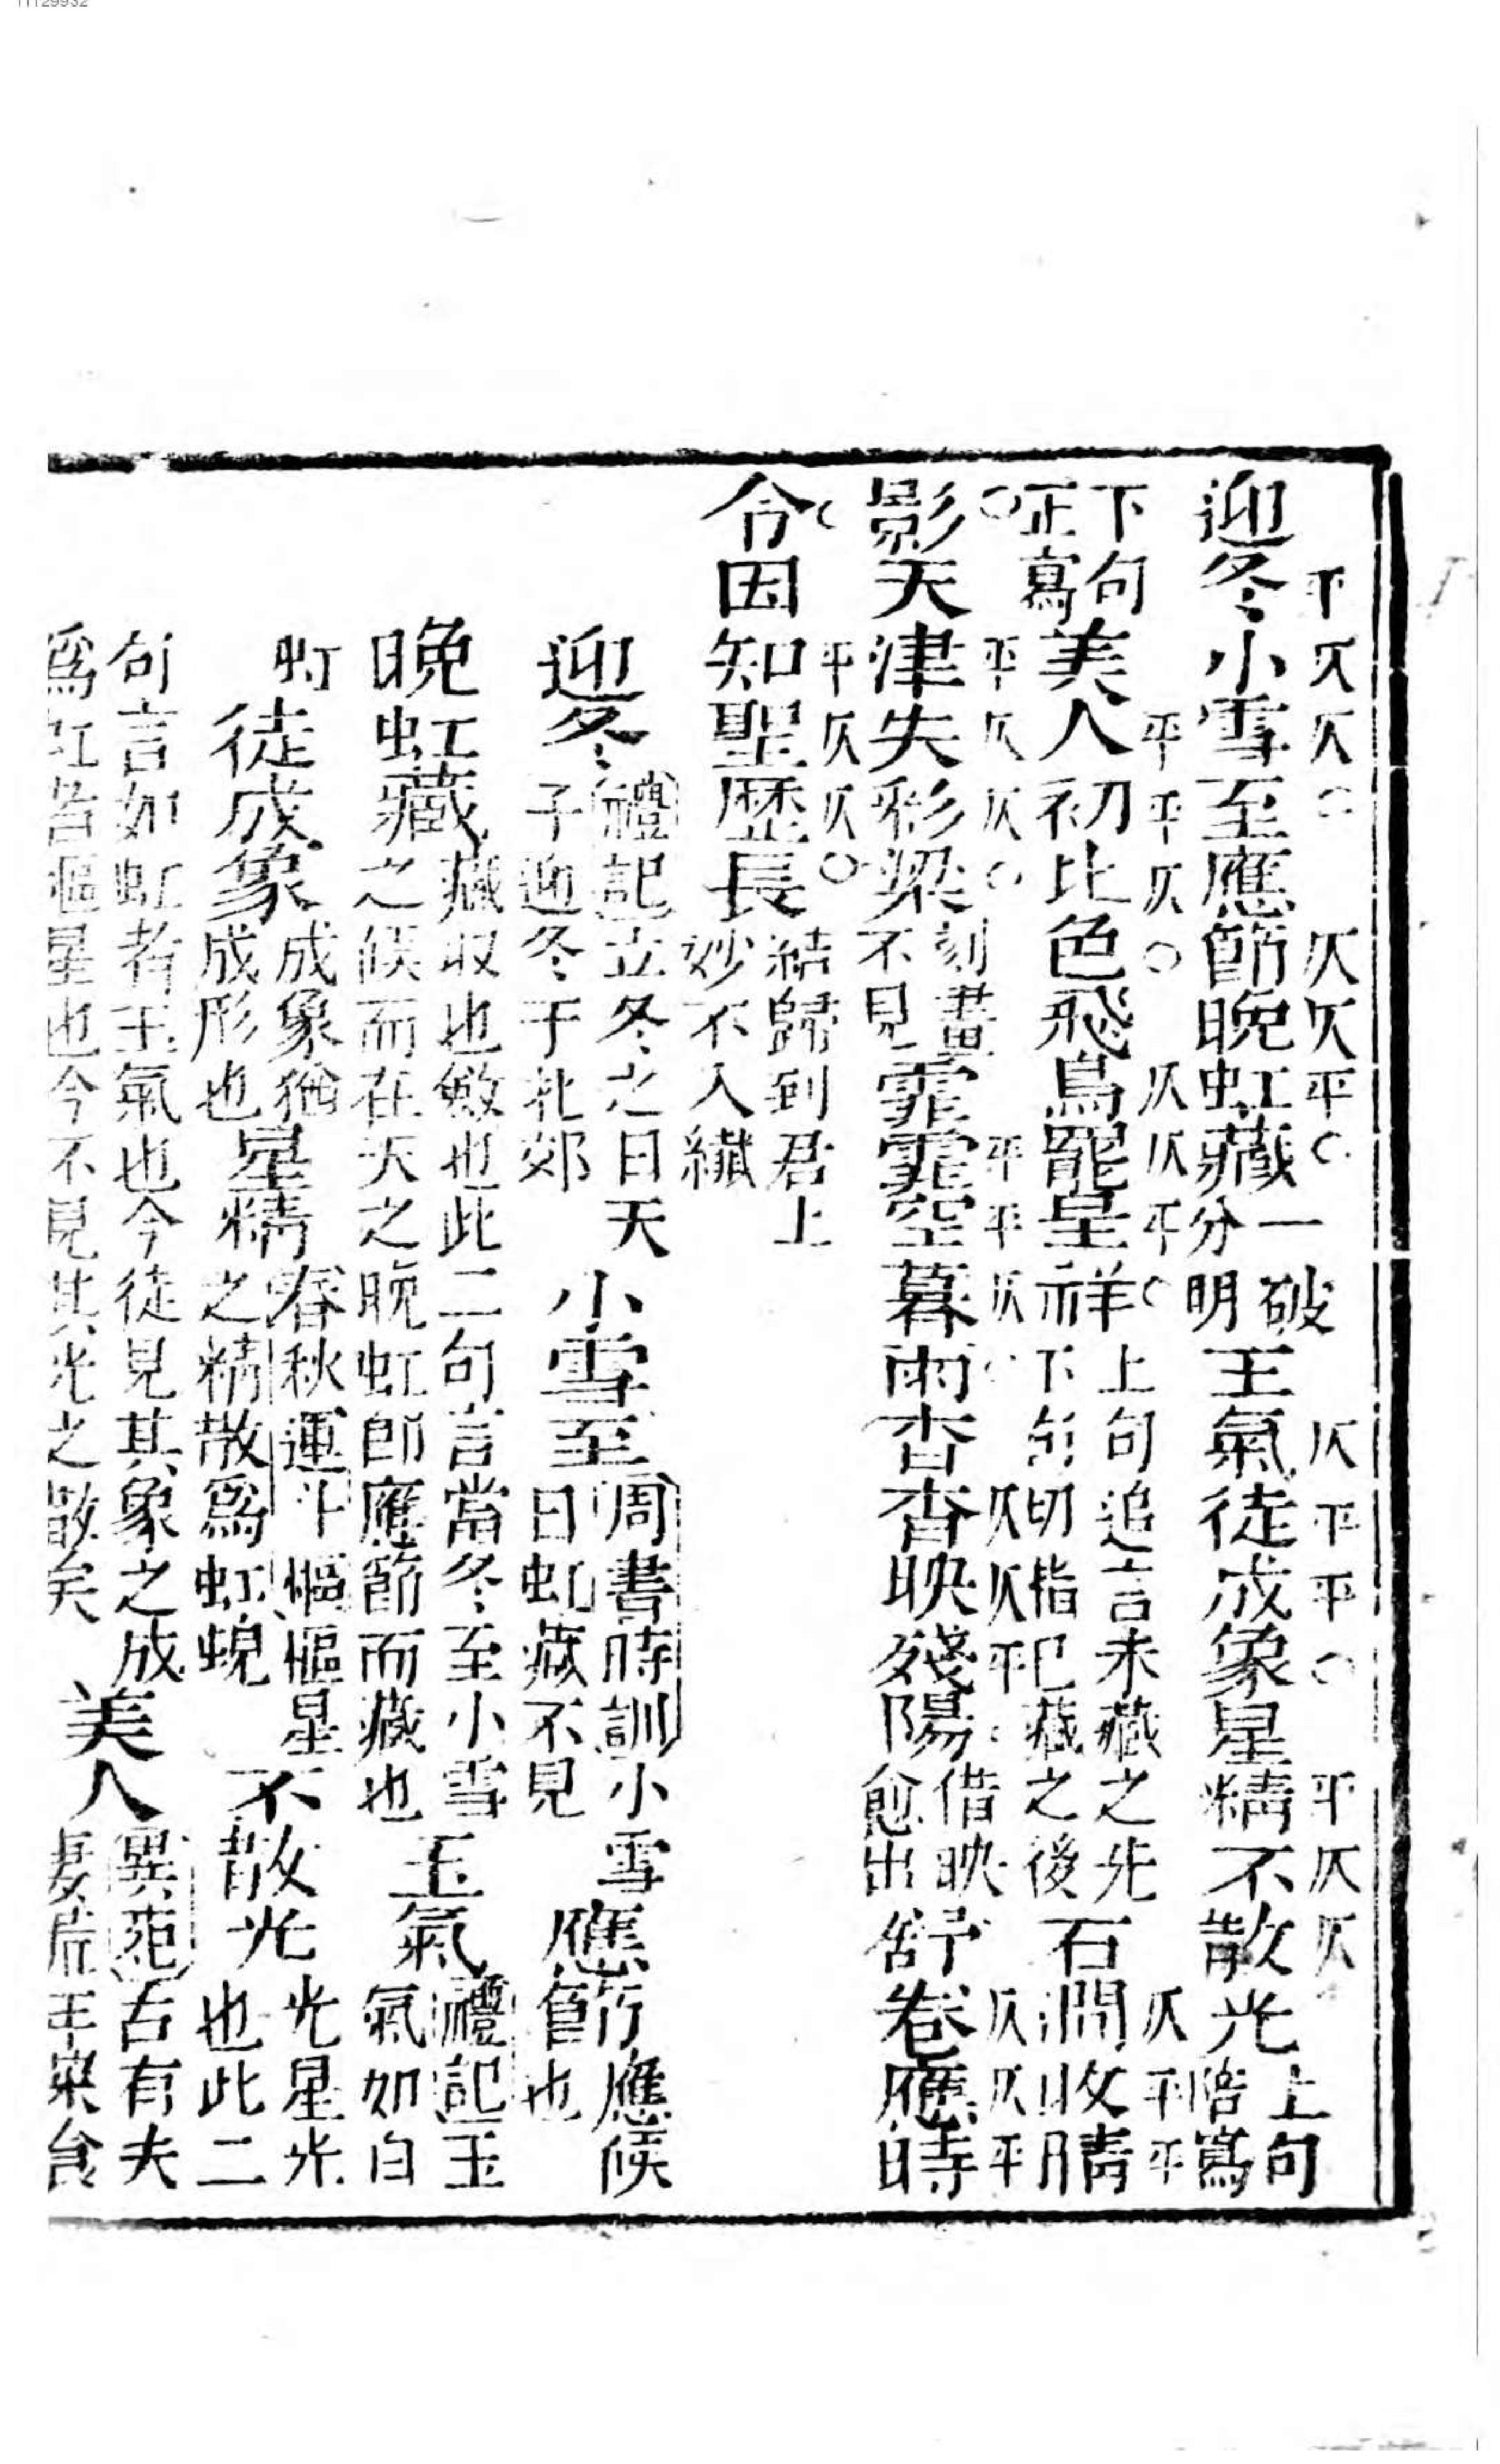 平仄仄○仄仄平○仄平平○平仄仄
迎冬小雪至應節晚虹藏一破分明王氣徒成象星精不散光上句陪寫
平平仄○仄仄平○仄平平
下句正寫美人初比色飛鳥罷呈祥上句追言未藏之先下句切指已藏之後石澗收晴
○平仄仄○平平仄○仄仄平○仄仄平
影天津失彩梁刻畫不見霏霏空暮雨杳杳映殘陽借映愈出舒卷應時
○平仄仄○
令因知聖歷長結歸到君上妙不入纖
迎冬禮記立冬之日天子迎冬于北郊小雪至周書時訓小雪日虹藏不見應節應候節也
晚虹藏藏収也斂也此二句言當冬至小雪之候而在天之晚虹卽應節而藏也玉氣禮記玉氣如白
虹徒成象成象猶成形也星精春秋運斗樞樞星之精散爲虹蜺不散光光星光也此二
句言如虹者玉氣也今徒見其象之成爲虹者樞星也今不見其光之散矣美人異苑古有夫妻荒年菜食